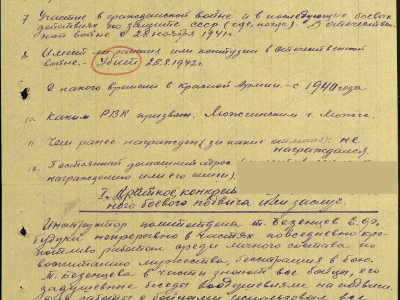 7. Участие в гражданской войне и в последующих боевых
действиях по защите СССР (где, когда). В отечествен-
ной войне с 28 ноября 1941 г.
8. Имеет ли ранения или контузии в отечественной
войне. - Убит 20.8.1942 г.
9. С какого времени в Красной Армии - с 1940 года
10. Каким РВК призван. Можайским г. Можга.
11. Чем ранее награжден (за какие отличия) не
награждался.
12. Постоянный домашний адрес
награждению или его семьи).
I. Краткое конкрет-
ного боевого подвига или заслуг.
Инструктор политотдела т. Безенцев Е.
будучи непрерывно в частях повседневно кро-
потливо работал среди личного состава по
воспитанию мужества, бесстрашия в бою.
т. Безенцева в части знают все бойцы, его
задушевные беседы воодушевляли на подвиги.
с бойцами использовал все